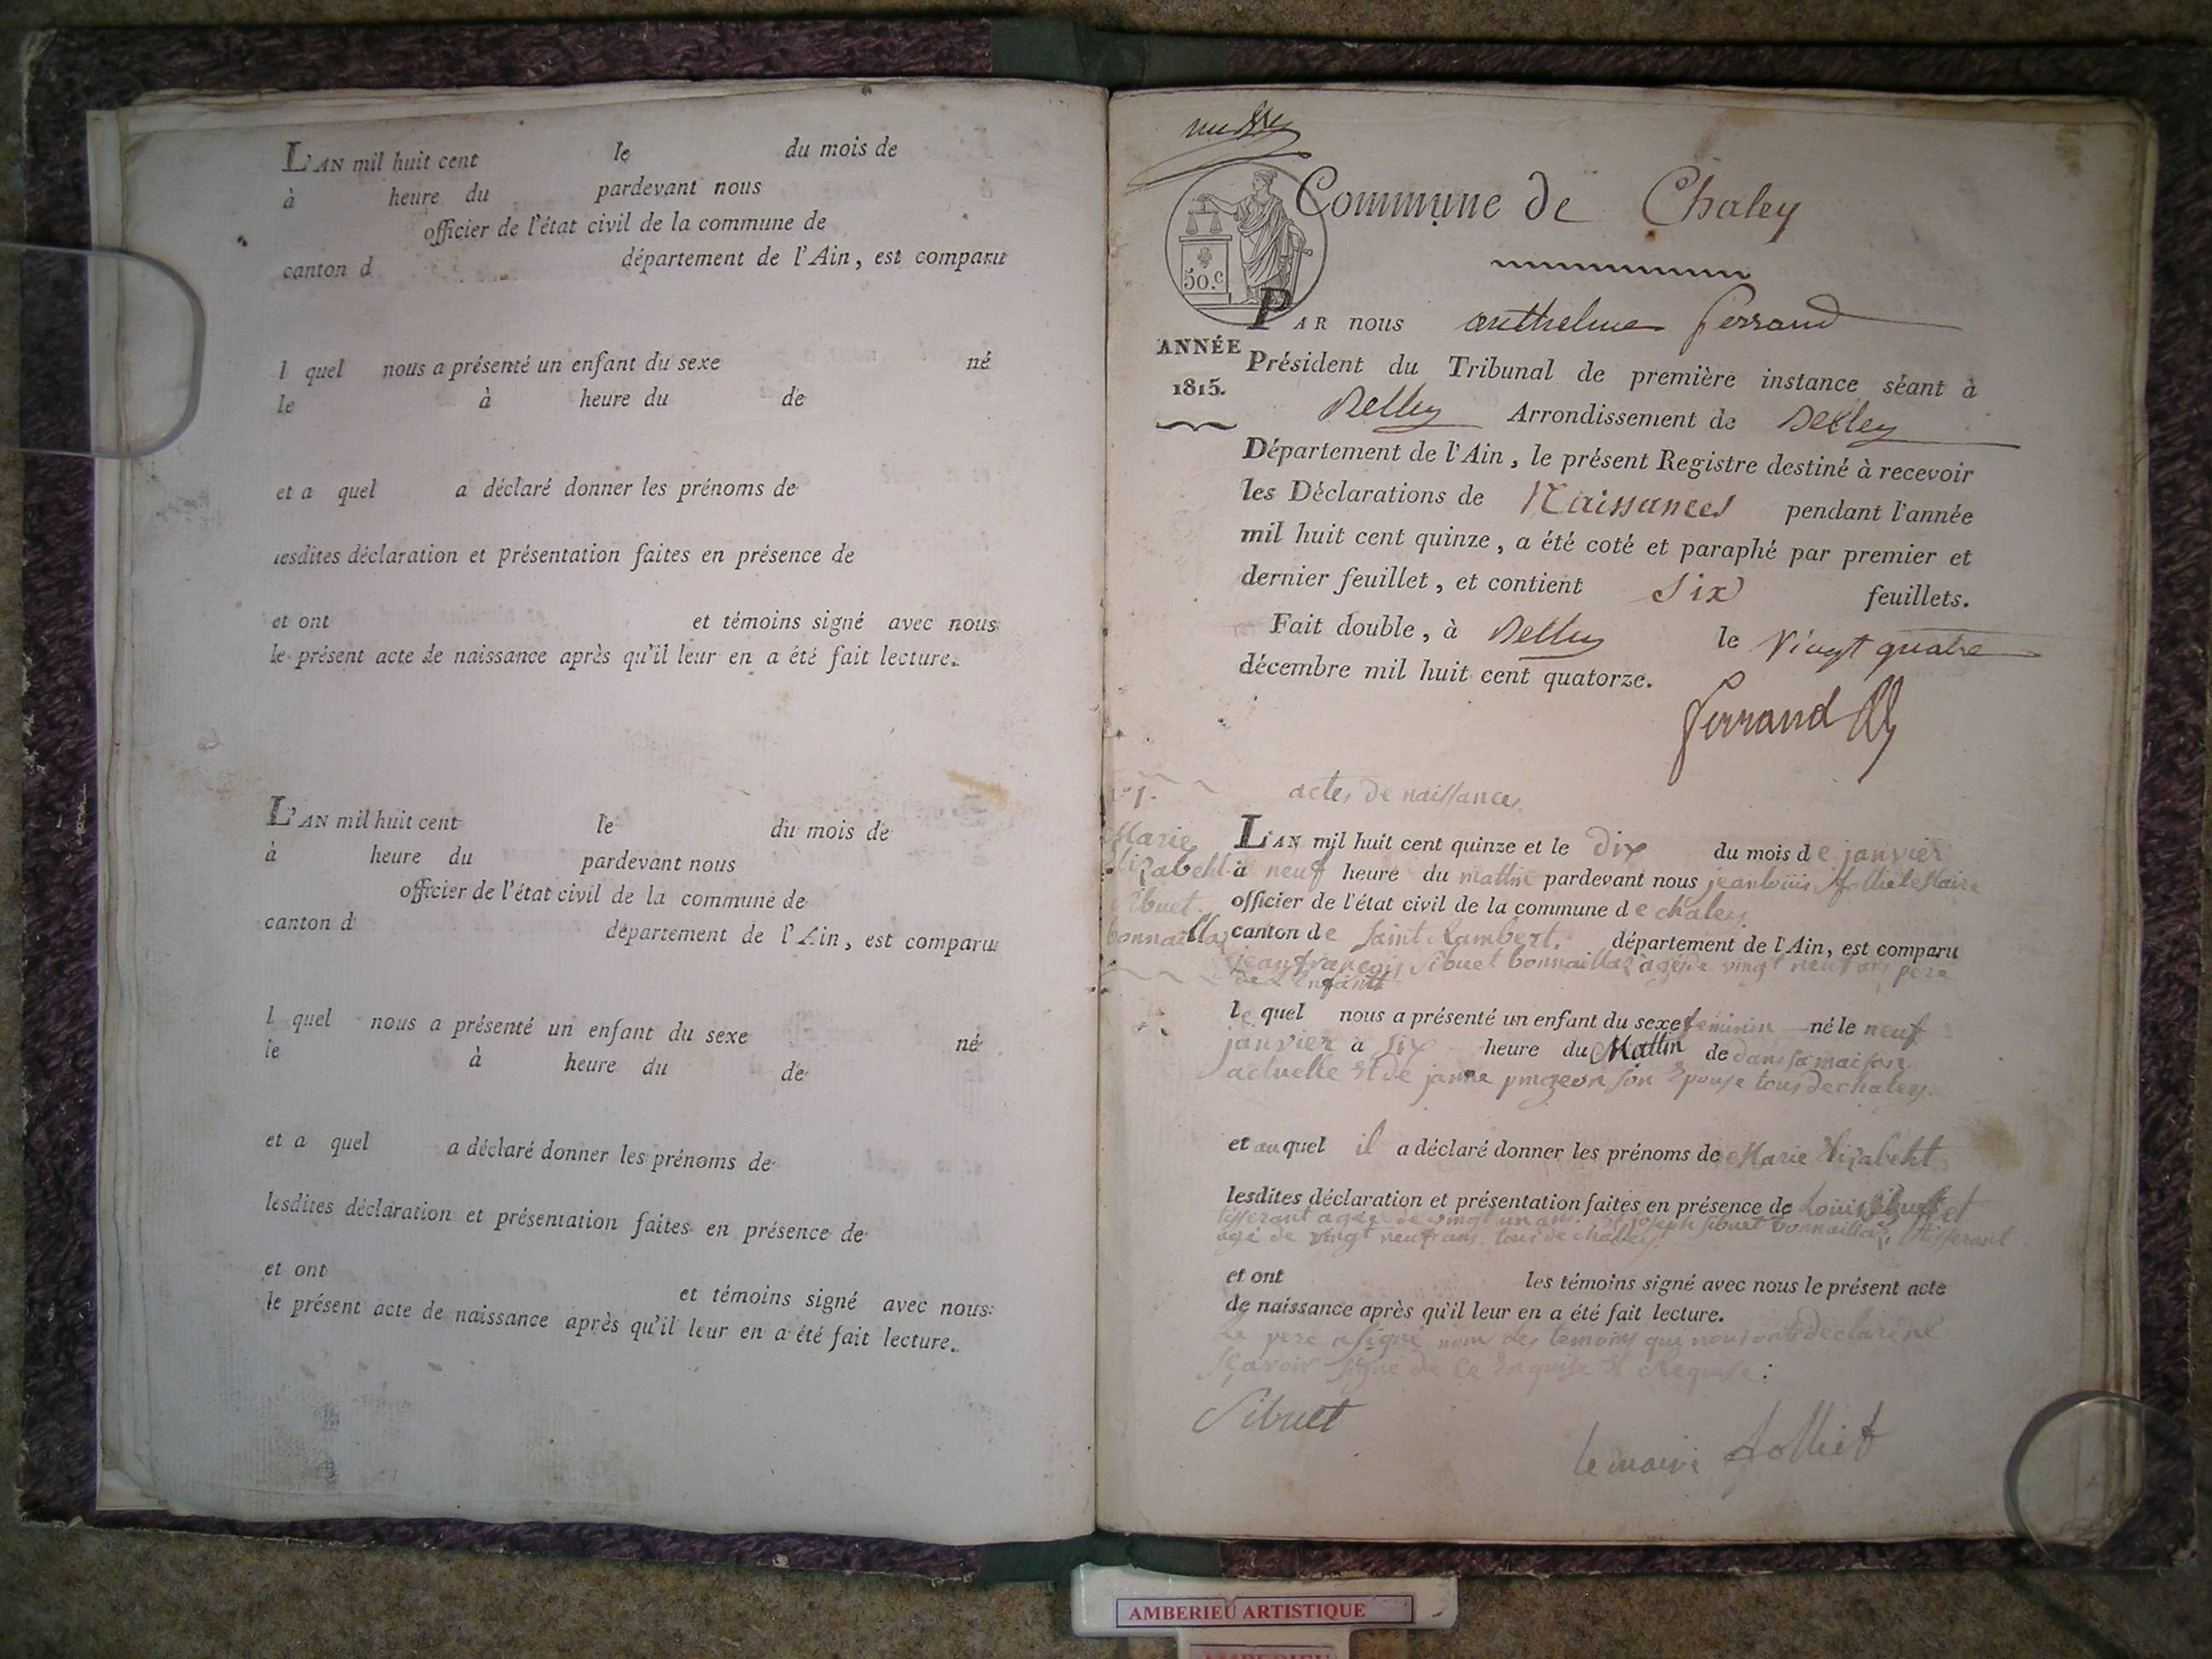 L'AN mil huit cent le du mois de
à heure du pardevant nous
officier de l'état civil de la commune de
canton d département de l'Ain, est comparu
l quel nous a présenté un enfant du sexe né
le à heure du de
et a quel a déclaré donner les prénoms de
lesdites déclaration et présentation faites en présence de
et ont et témoins signé avec nous
le présent acte de naissance après qu'il leur en a été fait lecture.
L'AN mil huit cent le du mois de
à heure du pardevant nous
officier de l'état civil de la commune de
canton d département de l'Ain, est comparu
l quel nous a présenté un enfant du sexe né
le à heure du de
et a quel a déclaré donner les prénoms de
lesdites déclaration et présentation faites en présence de
et ont et témoins signé avec nous
le présent acte de naissance après qu'il leur en a été fait lecture.
Commune de Chaley
50.c
PAR nous anthelme ferrand
ANNÉE
1815.
Président du Tribunal de première instance séant à
Belley Arrondissement de Belley
Département de l'Ain, le présent Registre destiné à recevoir
les Déclarations de Naissances pendant l'année
mil huit cent quinze, a été coté et paraphé par premier et
dernier feuillet, et contient six feuillets.
Fait double, à Belley le vingt quatre
décembre mil huit cent quatorze.
ferrand
actes de naissances
Marie
Elizabeht
Sibuet
bonnaillaz
L'AN mil huit cent quinze et le dix du mois de janvier
à neuf heure du mattin pardevant nous jean louis Jolliet Maire
officier de l'état civil de la commune de chaley
canton de Saint Rambert. département de l'Ain, est comparu
jean françois Sibuet bonnaillaz agé de vingt neuf ans père
de l'enfant
le quel nous a présenté un enfant du sexe feminin né le neuf
janvier à six heure du Mattin de dans sa maison
actuelle et de janne pingeon son Epouse tous de chaley
et au quel il a déclaré donner les prénoms de Marie Elizabeht
lesdites déclaration et présentation faites en présence de Louis Sibuet et
tisserant agée de vingt un ans et joseph sibuet bonnaillaz tisserant
agé de vingt neuf ans tous de chaley
et ont les témoins signé avec nous le présent acte
de naissance après qu'il leur en a été fait lecture.
Le pere a signé non les temoins que nous ont declaré ne
sçavoir signé de ce Enquise et Requise:
Sibuet
le maire Jolliet
AMBERIEU ARTISTIQUE